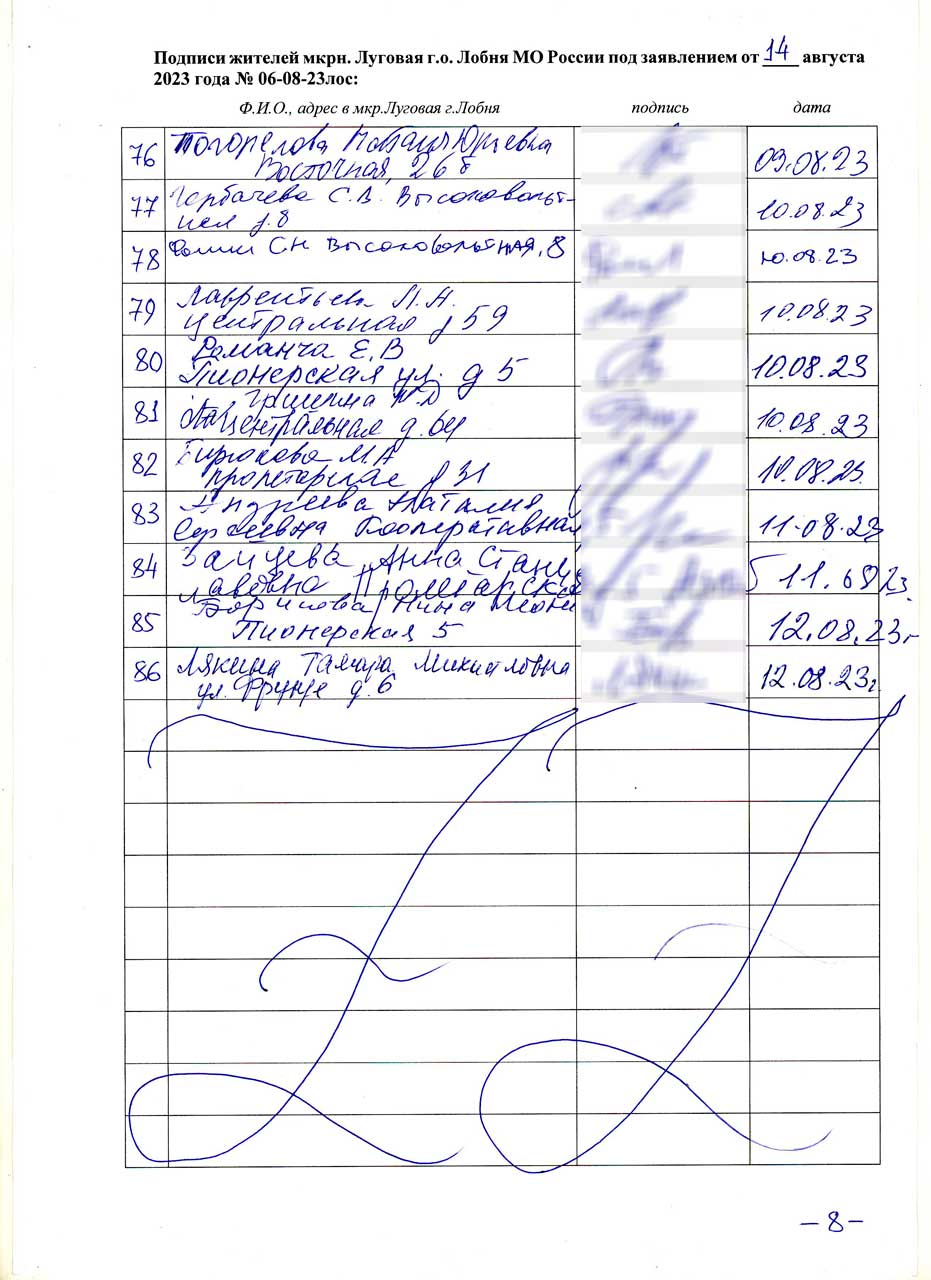 Подписи жителей мкрн. Луговая г.о. Лобня МО России под заявлением от 14 августа
2023 года № 06-08-23лос:
Ф.И.О., адрес в мкр.Луговая г.Лобня подпись дата
76 Погорелова Наталья Юрьевна
Восточная, 26 б 09.08.23
77 Горбачева С.В. Высоковольт-
ная д.8 10.08.23
78 СН Высоковольтная, 8 10.08.23
79 Лаврентьева Л.А.
Центральная д 59 10.08.23
80 Романча Е.В
Пионерская ул. д 5 10.08.23
81 Гришина
Центральная д. 64 10.08.23
82 Бирюкова М.А
д 31 10.08.23
83 Андреева Наталия
Сергеевна Кооперативная 11.08.23
84 Зайцева Анна Станис
лавовна Пролетарская 11.08 23.
85 Борисова Нина
Пионерская 5 12.08.23г
86 Лякина Тамара Михайловна
ул. Фрунзе д.6 12.08.23г
-8-